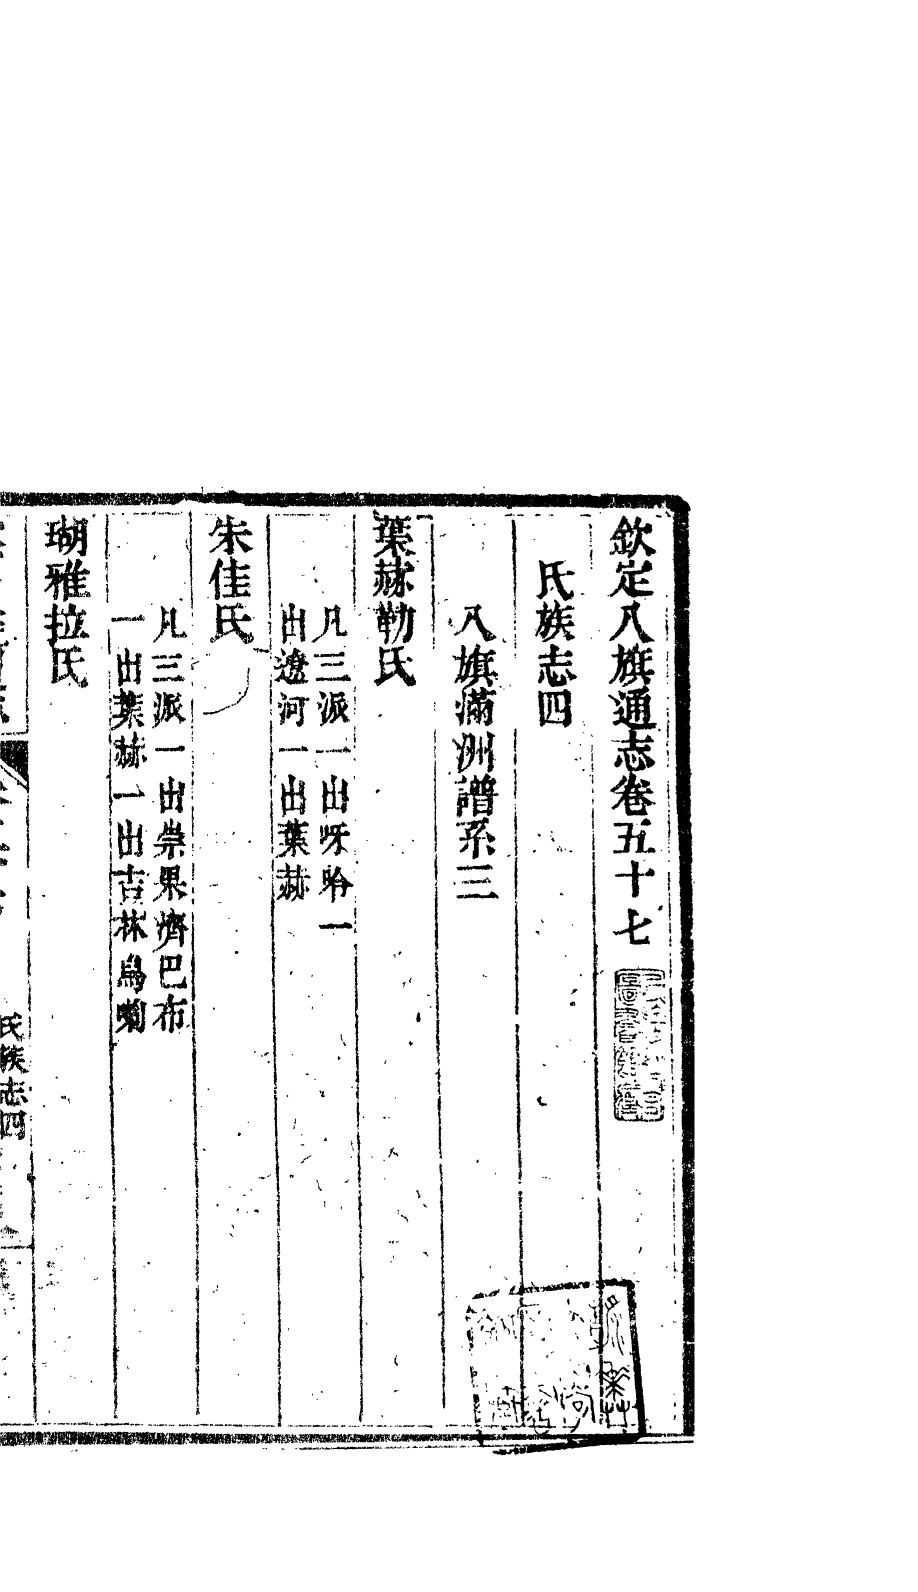 欽定八旗通志卷五十七
氏族志四
八旗滿洲譜系三
葉赫勒氏
凡三派一出呀哈一
出遼河一出葉赫
朱佳氏
凡三派一出崇果濟巴布
一出葉赫一出吉林烏喇
瑚雅拉氏
氏族志四